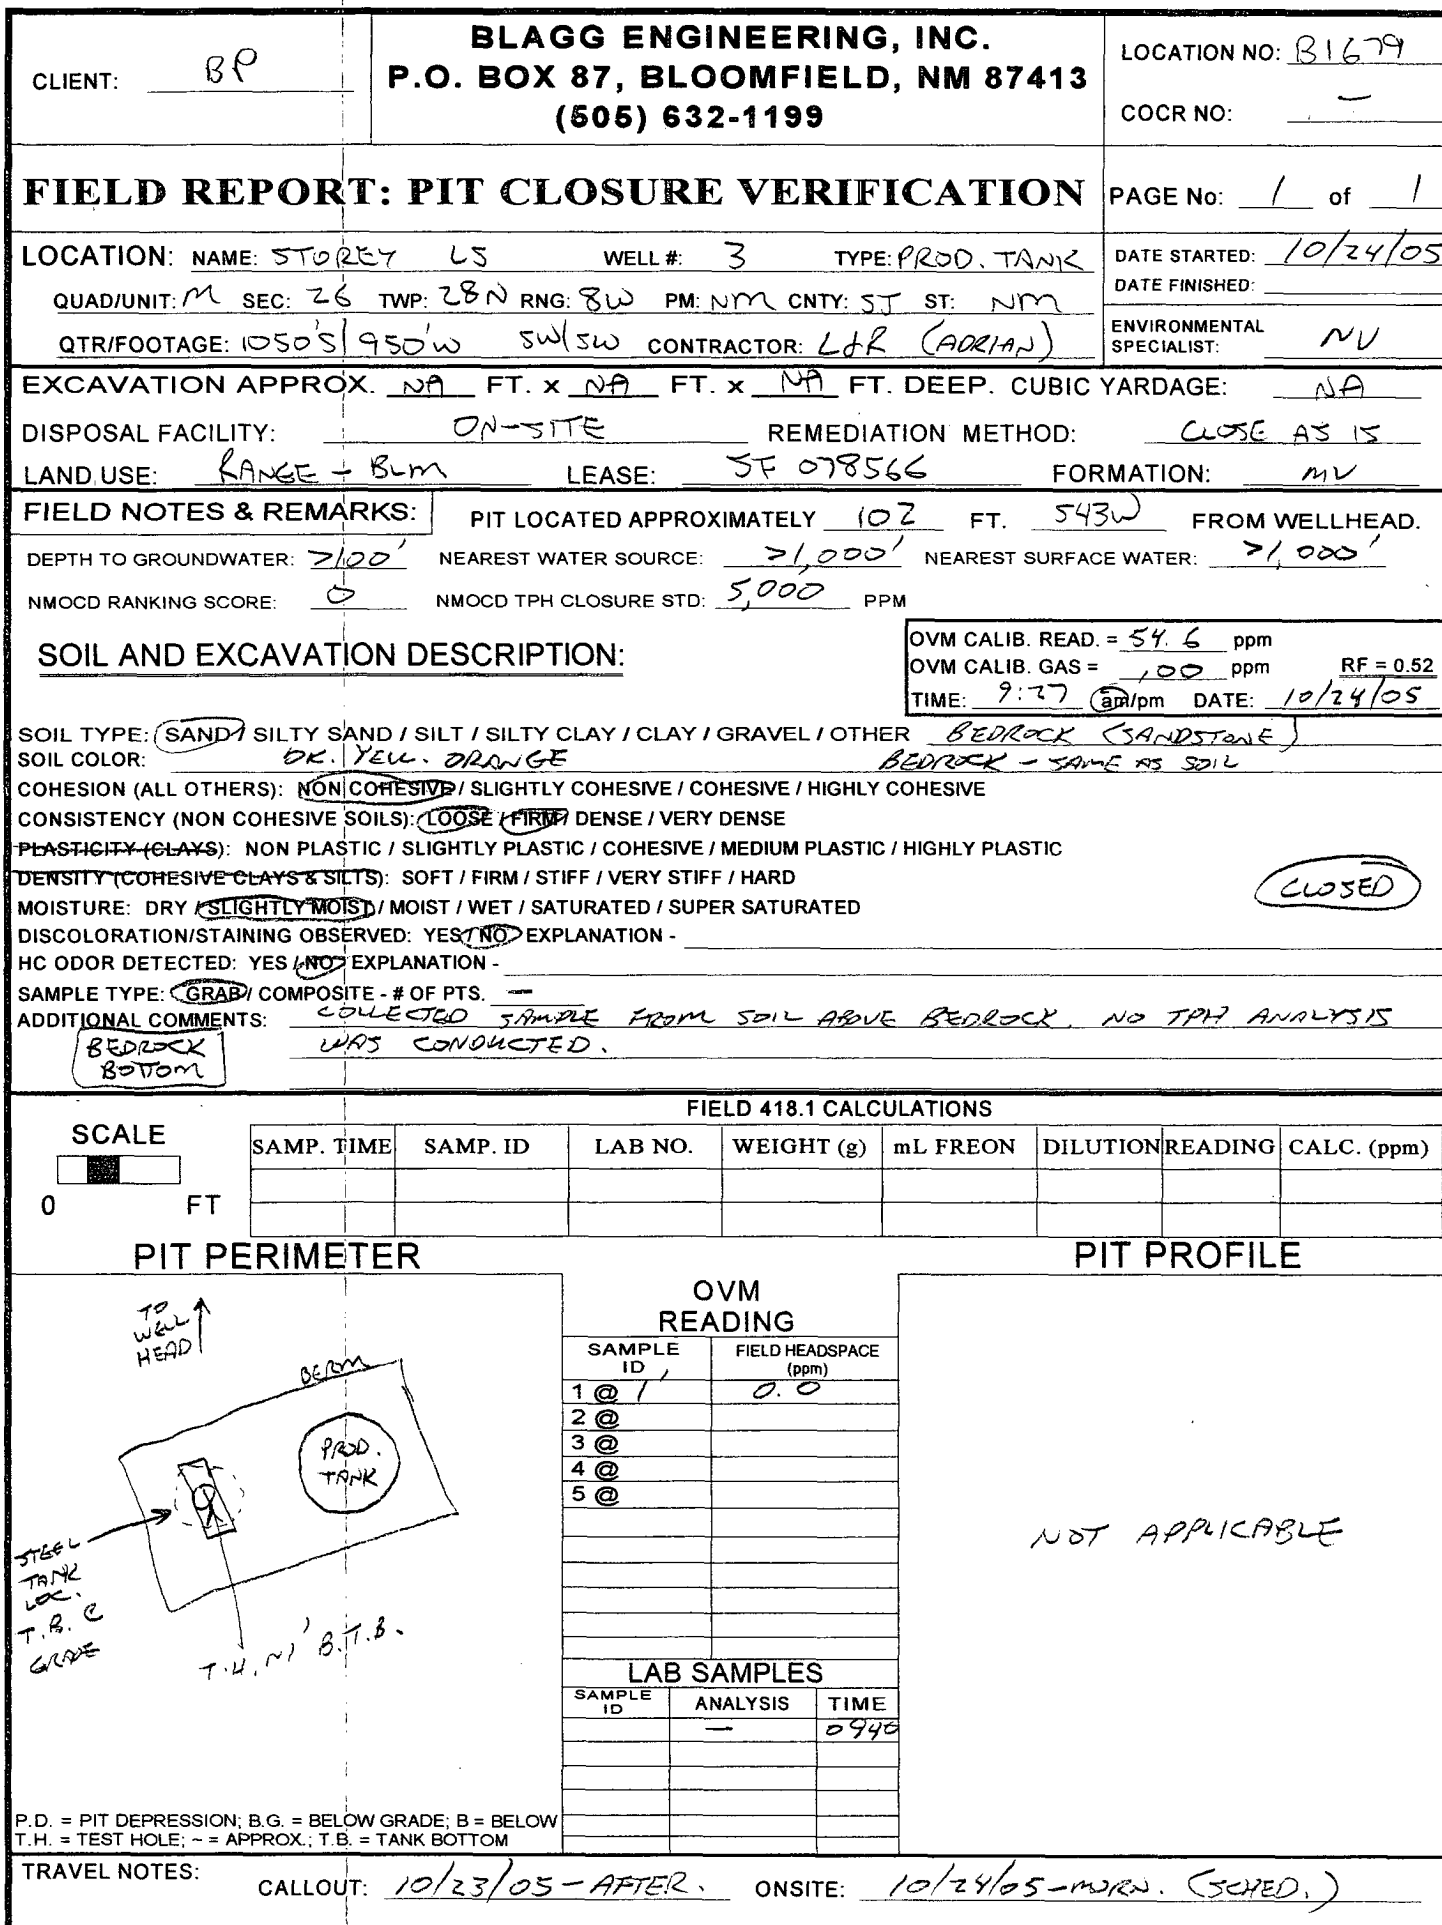 BLAGG ENGINEERING, INC.
CLIENT: BP
P.O. BOX 87, BLOOMFIELD, NM 87413
(505) 632-1199
LOCATION NO: B1679
COCR NO: —
FIELD REPORT: PIT CLOSURE VERIFICATION
PAGE No: 1 of 1
LOCATION: NAME: STOREY LS WELL #: 3 TYPE: PROD. TANK
QUAD/UNIT: M SEC: 26 TWP: 28N RNG: 8W PM: NM CNTY: SJ ST: NM
QTR/FOOTAGE: 1050'S/950'W SW/SW CONTRACTOR: L&R (ADRIAN)
DATE STARTED: 10/24/05
DATE FINISHED:
ENVIRONMENTAL
SPECIALIST: NV
EXCAVATION APPROX. NA FT. x NA FT. x NA FT. DEEP. CUBIC YARDAGE: NA
DISPOSAL FACILITY: ON-SITE REMEDIATION METHOD: CLOSE AS IS
LAND USE: RANGE - BLM LEASE: SF 078566 FORMATION: MV
FIELD NOTES & REMARKS: PIT LOCATED APPROXIMATELY 102 FT. S43W FROM WELLHEAD.
DEPTH TO GROUNDWATER: >100' NEAREST WATER SOURCE: >1,000' NEAREST SURFACE WATER: >1,000'
NMOCD RANKING SCORE: 0 NMOCD TPH CLOSURE STD: 5,000 PPM
SOIL AND EXCAVATION DESCRIPTION:
OVM CALIB. READ. = 54.6 ppm
OVM CALIB. GAS = 100 ppm RF = 0.52
TIME: 9:27 am/pm DATE: 10/24/05
SOIL TYPE: SAND / SILTY SAND / SILT / SILTY CLAY / CLAY / GRAVEL / OTHER BEDROCK (SANDSTONE)
SOIL COLOR: DK. YELL. ORANGE BEDROCK - SAME AS SOIL
COHESION (ALL OTHERS): NON COHESIVE / SLIGHTLY COHESIVE / COHESIVE / HIGHLY COHESIVE
CONSISTENCY (NON COHESIVE SOILS): LOOSE / FIRM / DENSE / VERY DENSE
PLASTICITY (CLAYS): NON PLASTIC / SLIGHTLY PLASTIC / COHESIVE / MEDIUM PLASTIC / HIGHLY PLASTIC
DENSITY (COHESIVE CLAYS & SILTS): SOFT / FIRM / STIFF / VERY STIFF / HARD
MOISTURE: DRY / SLIGHTLY MOIST / MOIST / WET / SATURATED / SUPER SATURATED
CLOSED
DISCOLORATION/STAINING OBSERVED: YES / NO EXPLANATION -
HC ODOR DETECTED: YES / NO EXPLANATION -
SAMPLE TYPE: GRAB / COMPOSITE - # OF PTS. —
ADDITIONAL COMMENTS: COLLECTED SAMPLE FROM SOIL ABOVE BEDROCK. NO TPH ANALYSIS
WAS CONDUCTED.
BEDROCK
BOTTOM
FIELD 418.1 CALCULATIONS
SCALE
0 FT
SAMP. TIME SAMP. ID LAB NO. WEIGHT (g) mL FREON DILUTION READING CALC. (ppm)
PIT PERIMETER
PIT PROFILE
TO
WELL
HEAD
BERM
PROD.
TANK
STEEL
TANK
LOC.
T.B. @
GRADE
T.H. ~1' B.T.B.
OVM
READING
SAMPLE
ID
FIELD HEADSPACE
(ppm)
1 @ 1' 0.0
2 @
3 @
4 @
5 @
NOT APPLICABLE
LAB SAMPLES
SAMPLE
ID
ANALYSIS TIME
— 0940
P.D. = PIT DEPRESSION; B.G. = BELOW GRADE; B = BELOW
T.H. = TEST HOLE; ~ = APPROX.; T.B. = TANK BOTTOM
TRAVEL NOTES: CALLOUT: 10/23/05 - AFTER. ONSITE: 10/24/05 - MORN. (SCHED.)